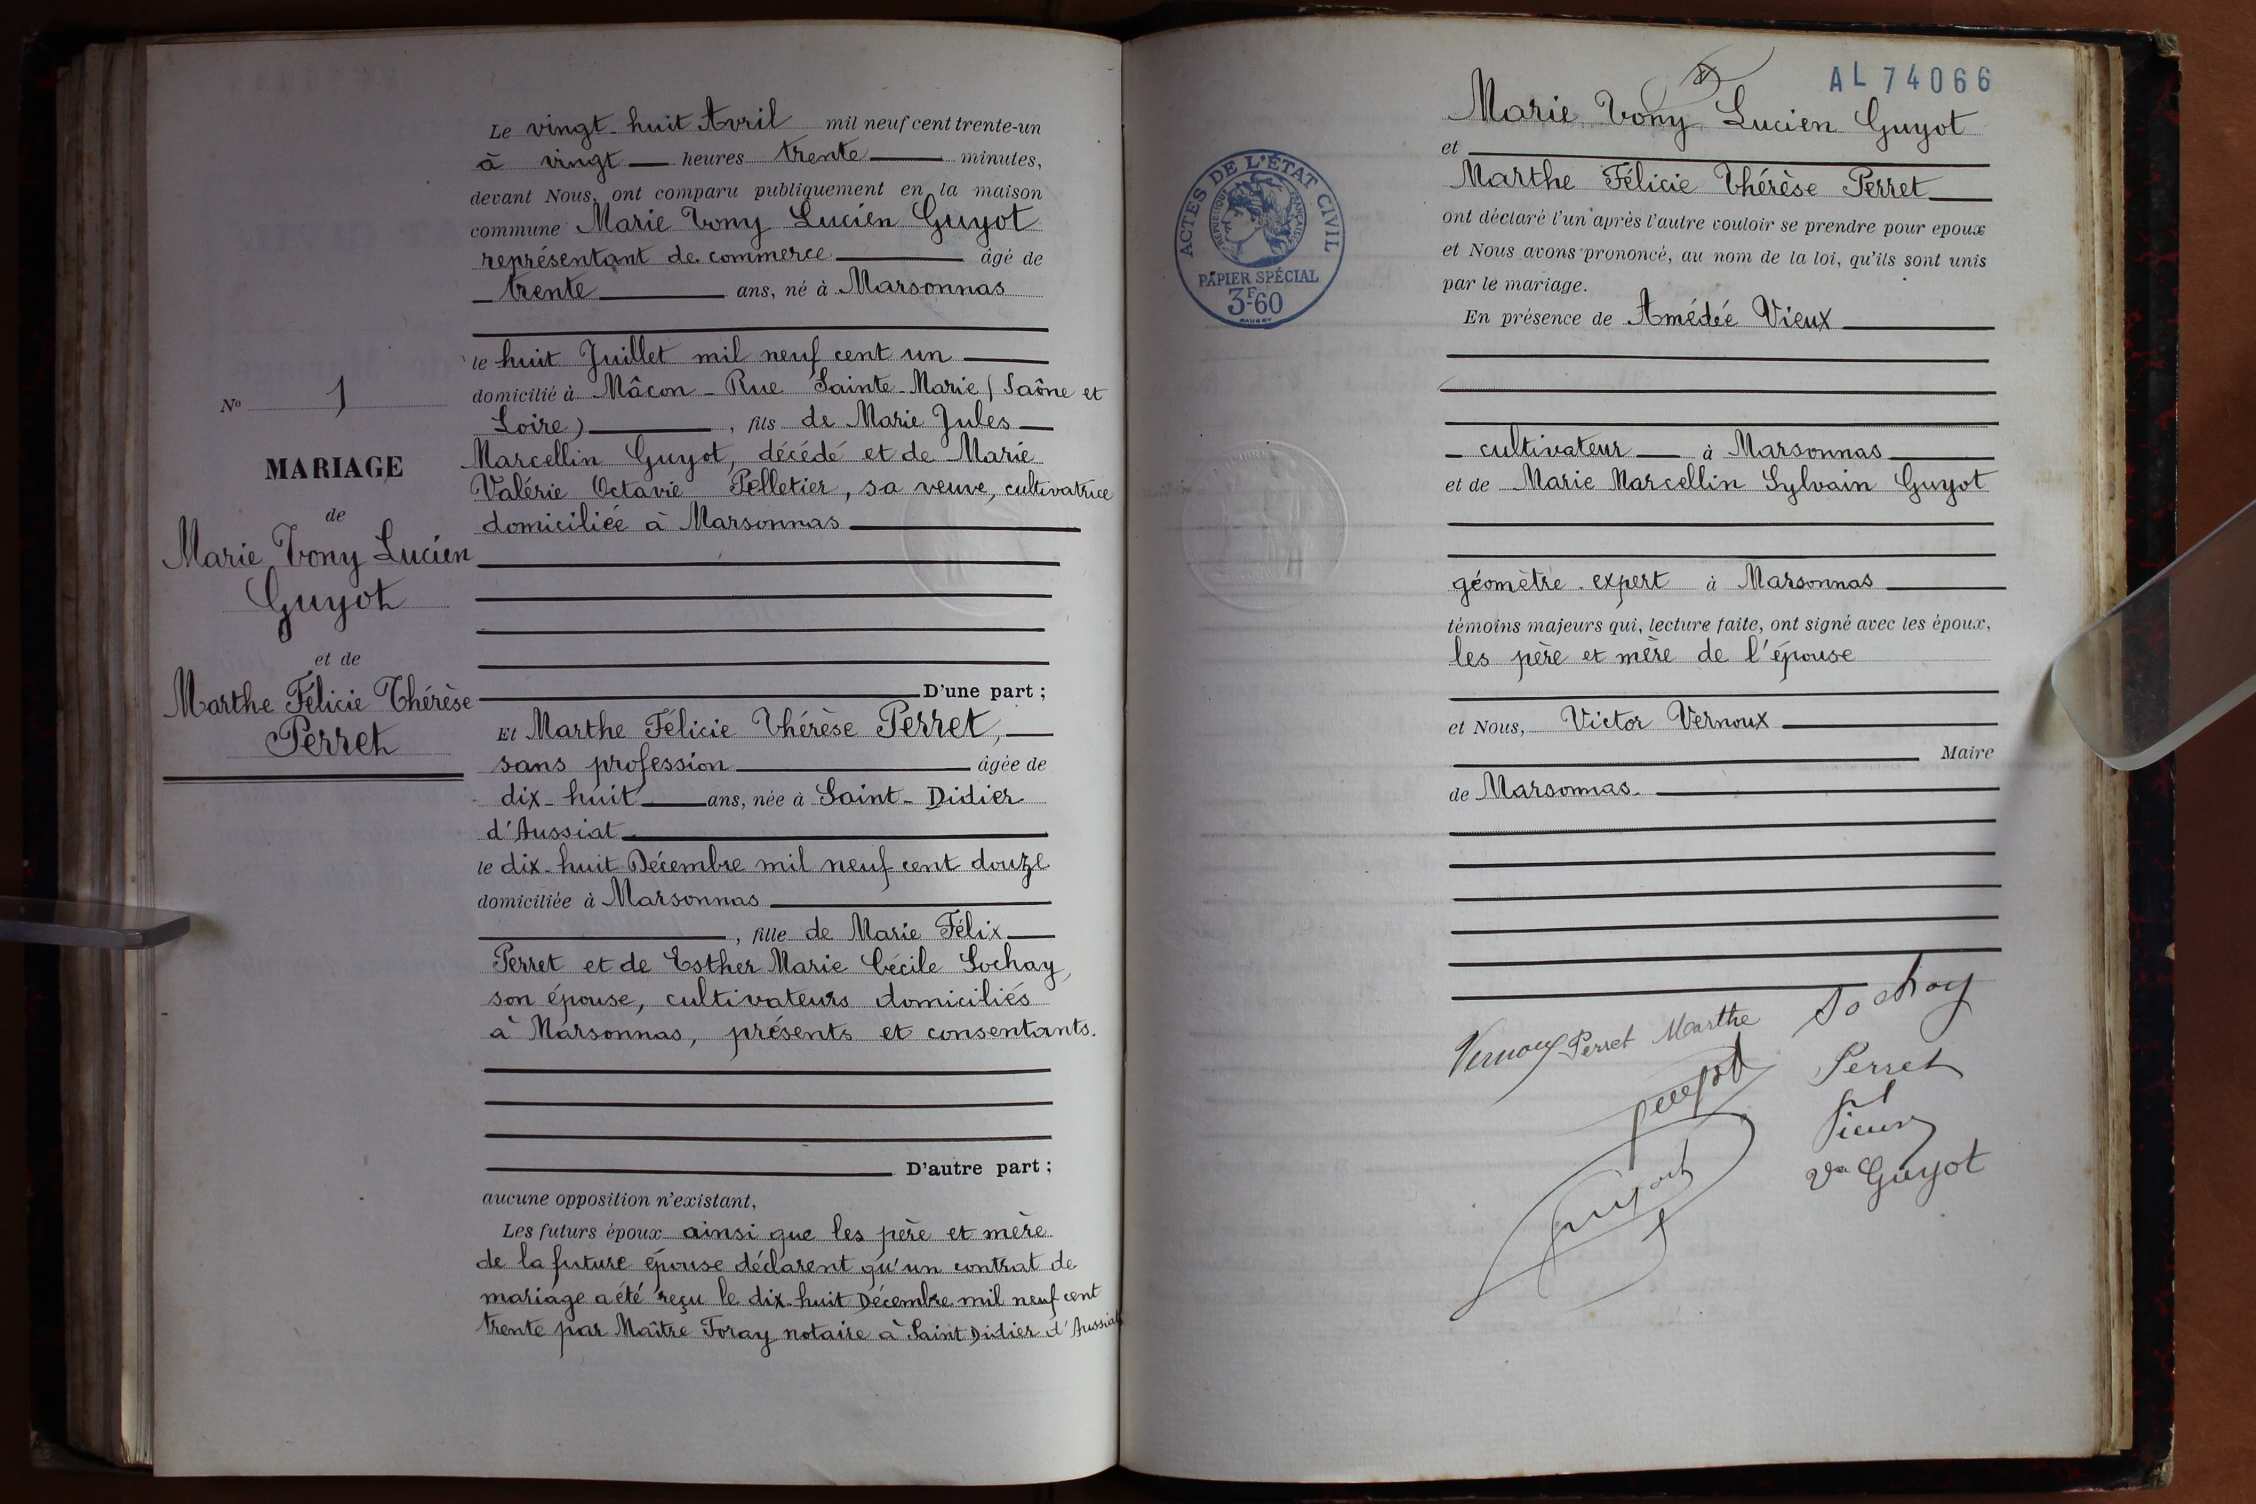 Le vingt-huit Avril mil neuf cent trente-un
à vingt heures trente minutes,
devant Nous, ont comparu publiquement en la maison
commune Marie Tony Lucien Guyot
représentant de commerce âgé de
trente ans, né à Marsonnas
le huit Juillet mil neuf cent un
domicilié à Mâcon - Rue Sainte-Marie (Saône et
Loire), fils de Marie Jules
Marcellin Guyot, décédé et de Marie
Valérie Octavie Pelletier, sa veuve, cultivatrice
domiciliée à Marsonnas
D'une part ;
Et Marthe Félicie Thérèse Perret,
sans profession âgée de
dix-huit ans, née à Saint-Didier
d'Aussiat
le dix-huit Décembre mil neuf cent douze
domiciliée à Marsonnas
, fille de Marie Félix
Perret et de Esther Marie Cécile Sochay,
son épouse, cultivateurs domiciliés
à Marsonnas, présents et consentants.
D'autre part ;
aucune opposition n'existant,
Les futurs époux ainsi que les père et mère
de la future épouse déclarent qu'un contrat de
mariage a été reçu le dix-huit Décembre mil neuf cent
trente par Maître Foray notaire à Saint Didier d'Aussiat
No 1
MARIAGE
de
Marie Tony Lucien
Guyot
et de
Marthe Félicie Thérèse
Perret
AL 74066
Marie Tony Lucien Guyot
et
Marthe Félicie Thérèse Perret
ont déclaré l'un après l'autre vouloir se prendre pour epoux
et Nous avons prononcé, au nom de la loi, qu'ils sont unis
par le mariage.
En présence de Amédée Vieux
cultivateur à Marsonnas
et de Marie Marcellin Sylvain Guyot
géomètre-expert à Marsonnas
témoins majeurs qui, lecture faite, ont signé avec les époux,
les père et mère de l'épouse
et Nous, Victor Vernoux
Maire
de Marsonnas.
Vernoux Perret Marthe Sochay
Guyot Perret
Vieux
Guyot Vve Guyot
ACTES DE L'ÉTAT CIVIL
RÉPUBLIQUE FRANÇAISE
PAPIER SPÉCIAL
3F60